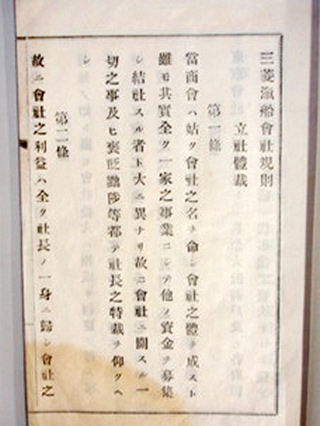 三菱汽船會社規則
立社體裁
第一條
當商會ハ姑ク會社之名ヲ命シ會社之體ヲ成スト
雖モ其實全ク一家之事業ニシテ他ノ資金ヲ募集
シ結社スル者ト大ニ異ナリ故ニ會社ニ關スル一
切之事及ヒ褒貶黜陟等都テ社長之特裁ヲ仰クヘ
シ
第二條
故ニ會社之利益ハ全ク社長ノ一身ニ歸シ會社之